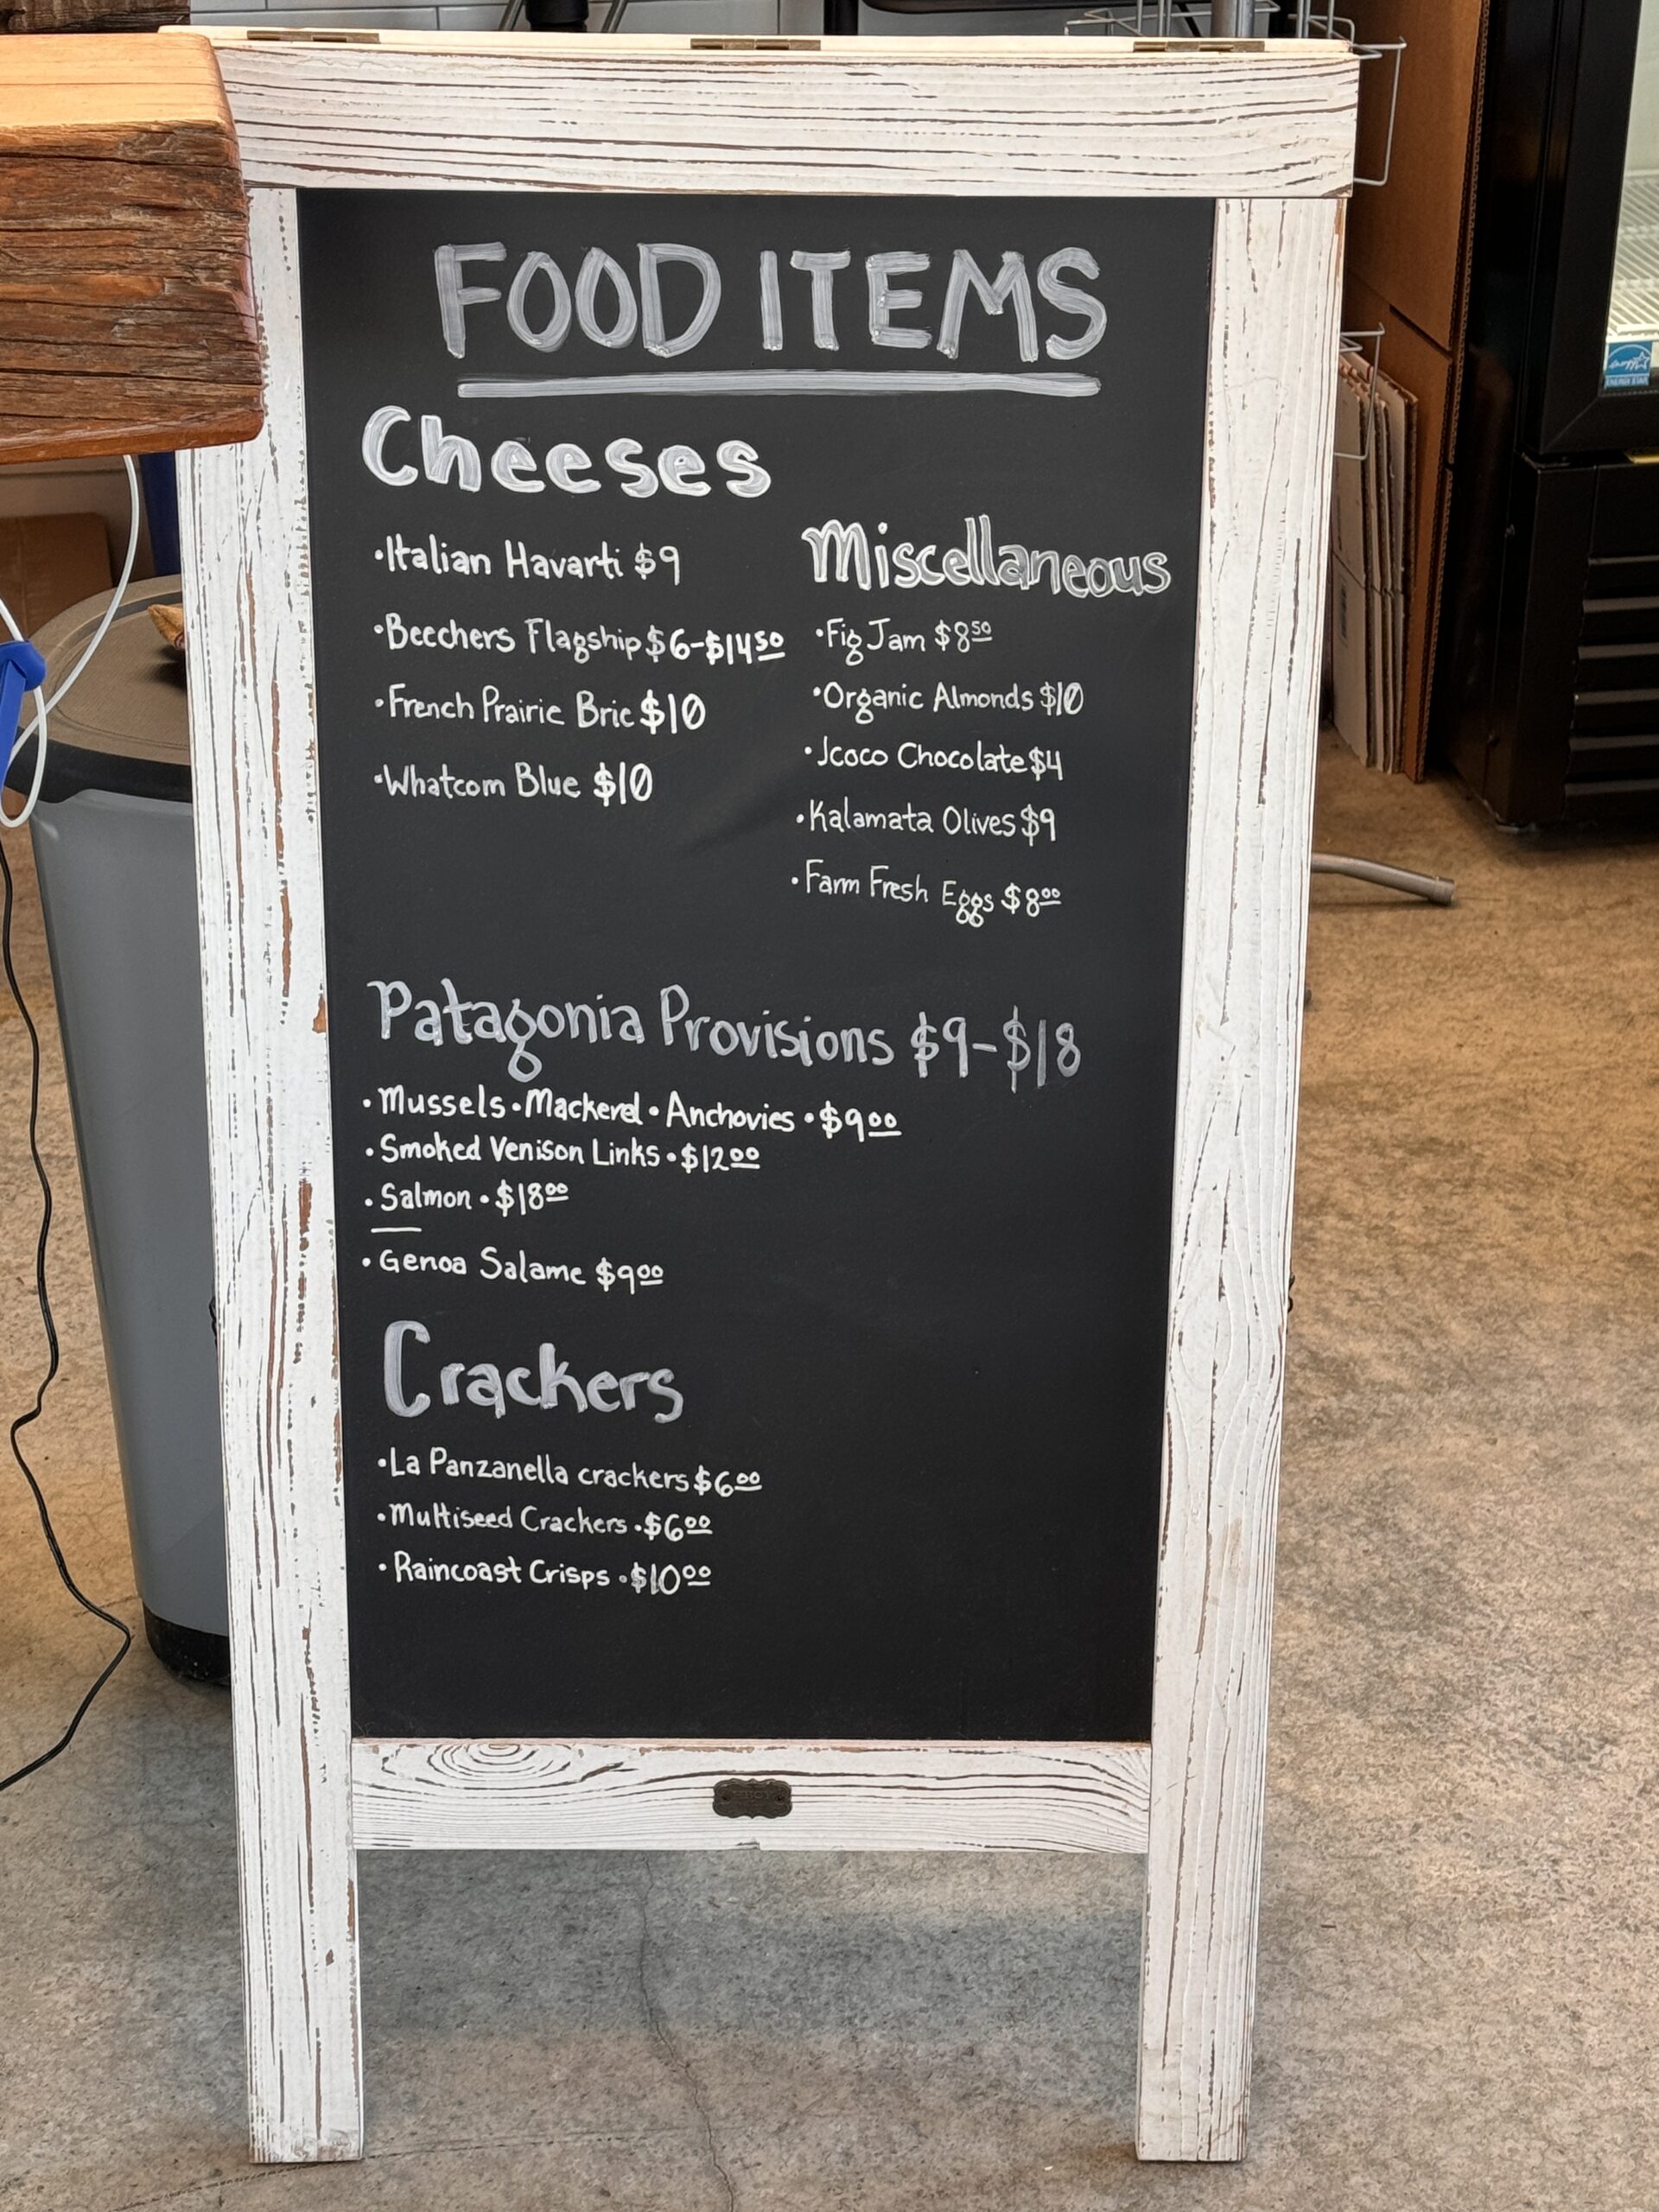 FOOD ITEMS
Cheeses
•Italian Havarti $9
•Beechers Flagship $6-$14⁵⁰
•French Prairie Brie $10
•Whatcom Blue $10
Miscellaneous
•Fig Jam $8⁵⁰
•Organic Almonds $10
•Jcoco Chocolate $4
•Kalamata Olives $9
•Farm Fresh Eggs $8⁰⁰
Patagonia Provisions $9-$18
•Mussels•Mackerel•Anchovies•$9⁰⁰
•Smoked Venison Links•$12⁰⁰
•Salmon•$18⁰⁰
•Genoa Salame $9⁰⁰
Crackers
•La Panzanella crackers $6⁰⁰
•Multiseed Crackers•$6⁰⁰
•Raincoast Crisps•$10⁰⁰
ENERGY STAR